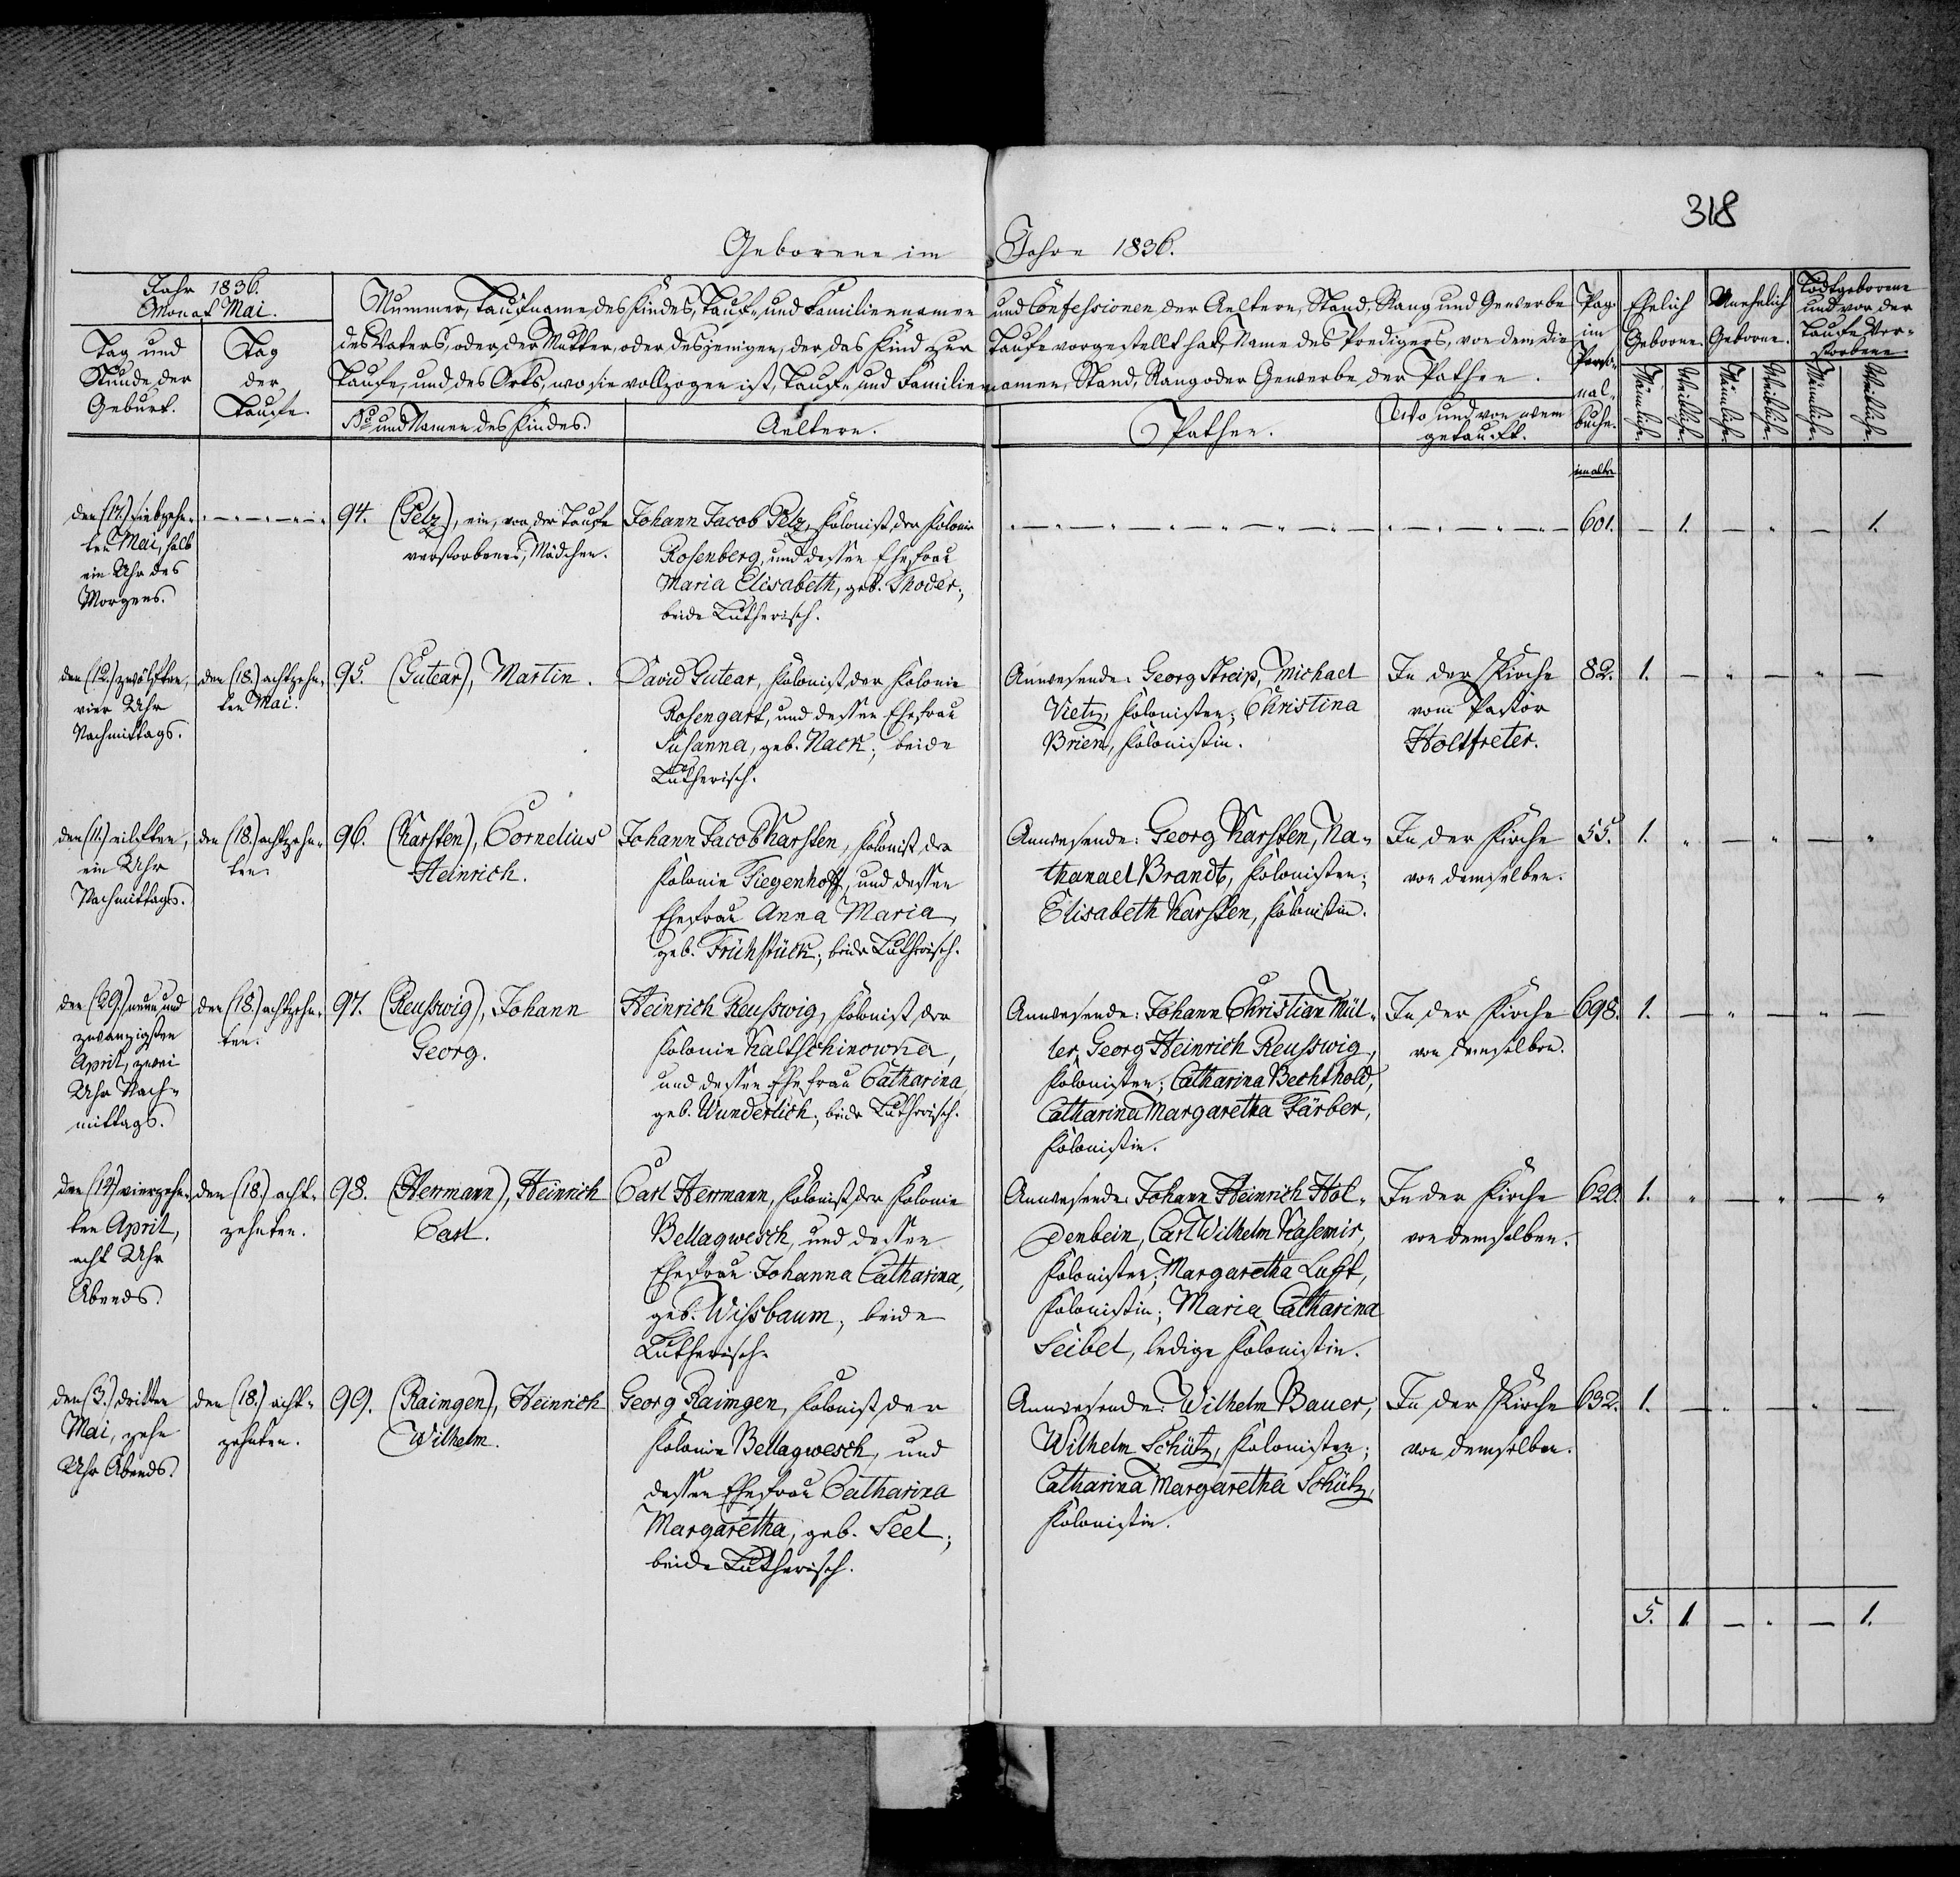 318
Geborene im Jahre 1836.
Jahr 1836.
Monat Mai.
Tag und
Stunde der
Geburt.
Tag
der
Taufe.
Nummer, Taufname des Kindes, Tauf- und Familiennamen und Confessionen der Aeltern, Stand, Rang und Gewerbe
des Vaters, oder der Mutter, oder desjenigen, der das Kind zur Taufe vorgestellt hat, Name des Predigers, von dem die
Taufe, und des Orts, wo sie vollzogen ist, Tauf- und Familiennamen, Stand, Rang oder Gewerbe der Pathen.
No und Namen des Kindes.
Aeltern.
Pathen.
Wo und von wem
getauft.
Pag.
im
Perso-
nal-
buche.
Ehelich
Geborne.
Unehelich
Geborne.
Todtgeborene
und vor der
Taufe Ver-
storbene.
Männliche.
Weibliche.
Männliche.
Weibliche.
Männliche.
Weibliche.
den (17.) siebzehn-
ten Mai, halb
ein Uhr des
Morgens.
94. (Pelz), ein, vor der Taufe
verstorbenes, Mädchen.
Johann Jacob Pelz, Kolonist der Kolonie
Rosenberg, und dessen Ehefrau
Maria Elisabeth, geb. Thoder.,
beide Lutherisch.
im alten
601. — 1. — " — 1.
den (12.) zwölften,
vier Uhr
Nachmittags.
den (18.) achtzehn-
ten Mai.
95. (Gutear), Martin.
David Gutear, Kolonist der Kolonie
Rosengart, und dessen Ehefrau
Susanna, geb. Nack; beide
Lutherisch.
Anwesende: Georg Streip, Michael
Vietz, Kolonisten; Christina
Brien, Kolonistin.
In der Kirche
vom Pastor
Holtfreter.
82. 1. — " — " —
den (11.) eilften,
ein Uhr
Nachmittags.
den (18.) achtzehn-
ten.
96. (Karsten), Cornelius
Heinrich.
Johann Jacob Karsten, Kolonist der
Kolonie Tiegenhoff, und dessen
Ehefrau Anna Maria,
geb. Frühstück; beide Lutherisch.
Anwesende: Georg Karsten, Na-
thanael Brandt, Kolonisten;
Elisabeth Karsten, Kolonistin.
In der Kirche
von demselben.
55. 1. " — " — "
den (29.) neun und
zwanzigsten
April, zwei
Uhr Nach-
mittags.
den (18.) achtzehn-
ten.
97. (Reusswig), Johann
Georg.
Heinrich Reusswig, Kolonist der
Kolonie Kaltschinowka,
und dessen Ehefrau Catharina,
geb. Wunderlich; beide Lutherisch.
Anwesende: Johann Christian Mül-
ler, Georg Heinrich Reusswig,
Kolonisten; Catharina Bechthold,
Catharina Margaretha Färber,
Kolonistin.
In der Kirche
von demselben.
698. 1. — " — " —
den (14.) vierzehn-
ten April,
acht Uhr
Abends.
den (18.) acht-
zehnten.
98. (Herrmann), Heinrich
Carl.
Carl Herrmann, Kolonist der Kolonie
Bellagwesch, und dessen
Ehefrau Johanna Catharina,
geb. Wissbaum; beide
Lutherisch.
Anwesende: Johann Heinrich Hol-
denbein, Carl Wilhelm Kasemir,
Kolonisten; Margaretha Luft,
Kolonistin; Maria Catharina
Seibel, ledige Kolonistin.
In der Kirche
von demselben.
620. 1. " — " — "
den (3.) dritten
Mai, zehn
Uhr Abends.
den (18.) acht-
zehnten.
99. (Raimgen), Heinrich
Wilhelm.
Georg Raimgen, Kolonist der
Kolonie Bellagwesch, und
dessen Ehefrau Catharina
Margaretha, geb. Seel;
beide Lutherisch.
Anwesende: Wilhelm Bauer,
Wilhelm Schütz, Kolonisten;
Catharina Margaretha Schütz,
Kolonistin.
In der Kirche
von demselben.
632. 1. — " — " —
5. 1. — " — 1.